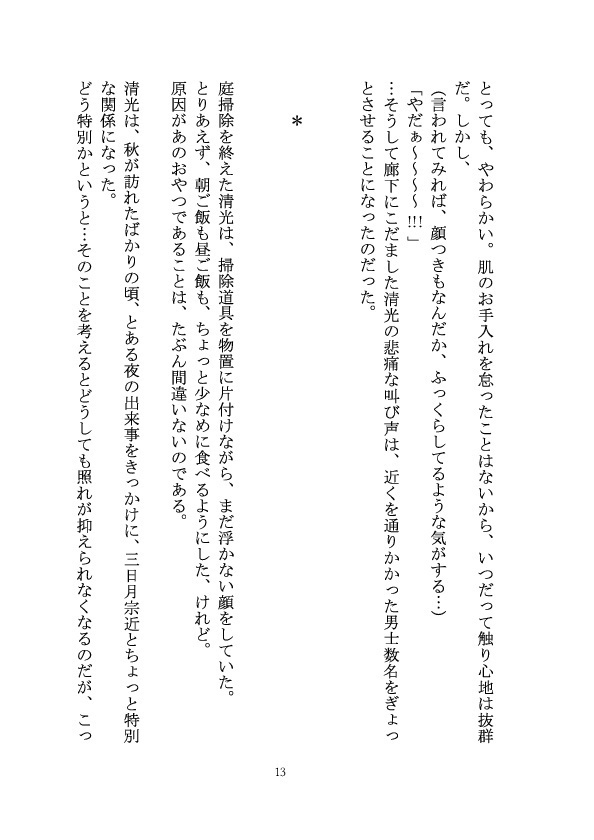 とっても、やわらかい。肌のお手入れを怠ったことはないから、いつだって触り心地は抜群
だ。しかし、
(言われてみれば、顔つきもなんだか、ふっくらしてるような気がする…)
「やだぁ～～～～!!!」
…そうして廊下にこだました清光の悲痛な叫び声は、近くを通りかかった男士数名をぎょっ
とさせることになったのだった。
*
庭掃除を終えた清光は、掃除道具を物置に片付けながら、まだ浮かない顔をしていた。
とりあえず、朝ご飯も昼ご飯も、ちょっと少なめに食べるようにした、けれど。
原因があのおやつであることは、たぶん間違いないのである。
清光は、秋が訪れたばかりの頃、とある夜の出来事をきっかけに、三日月宗近とちょっと特別
な関係になった。
どう特別かというと…そのことを考えるとどうしても照れが抑えられなくなるのだが、こっ
13